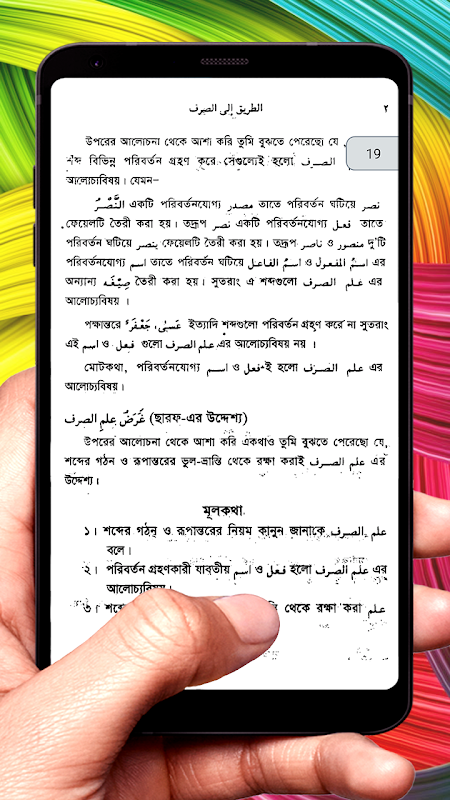 الطريق إلى الصرف ٢
19
উপরের আলোচনা থেকে আশা করি তুমি বুঝতে পেরেছো যে,
শব্দ বিভিন্ন পরিবর্তন গ্রহণ করে সেগুলোই হলো الصرف
আলোচ্যবিষয়। যেমন–
اَلنَّصْرُ একটি পরিবর্তনযোগ্য مصدر তাতে পরিবর্তন ঘটিয়ে نصر
ফেয়েলটি তৈরী করা হয়। তদ্রূপ نصر একটি পরিবর্তনযোগ্য فعل তাতে
পরিবর্তন ঘটিয়ে ينصر ফেয়েলটি তৈরী করা হয়। তদ্রূপ ناصر ও منصور দু'টি
পরিবর্তনযোগ্য اسم তাতে পরিবর্তন ঘটিয়ে اسم الفاعل ও اسم المفعول এর
অন্যান্য صِيْغَه তৈরী করা হয়। সুতরাং এ শব্দগুলো علم الصرف এর
আলোচ্যবিষয় ।
পক্ষান্তরে عَسٰى، جَعْفَرٌ ইত্যাদি শব্দগুলো পরিবর্তন গ্রহণ করে না সুতরাং
এই اسم ও فعل গুলো علم الصرف এর আলোচ্যবিষয় নয় ।
মোটকথা, পরিবর্তনযোগ্য اسم ও فعل ই হলো علم الصرف এর
আলোচ্যবিষয়।
غَرَضُ علمِ الصرف (ছারফ-এর উদ্দেশ্য)
উপরের আলোচনা থেকে আশা করি একথাও তুমি বুঝতে পেরেছো যে,
শব্দের গঠন ও রূপান্তরের ভুল-ভ্রান্তি থেকে রক্ষা করাই علم الصرف এর
উদ্দেশ্য।
মূলকথা
১। শব্দের গঠন ও রূপান্তরের নিয়ম কানুন জানাকে علم الصرف
বলে।
২। পরিবর্তন গ্রহণকারী যাবতীয় اسم ও فعل হলো علم الصرف এর
আলোচ্যবিষয়।
৩। থেকে রক্ষা করা علم